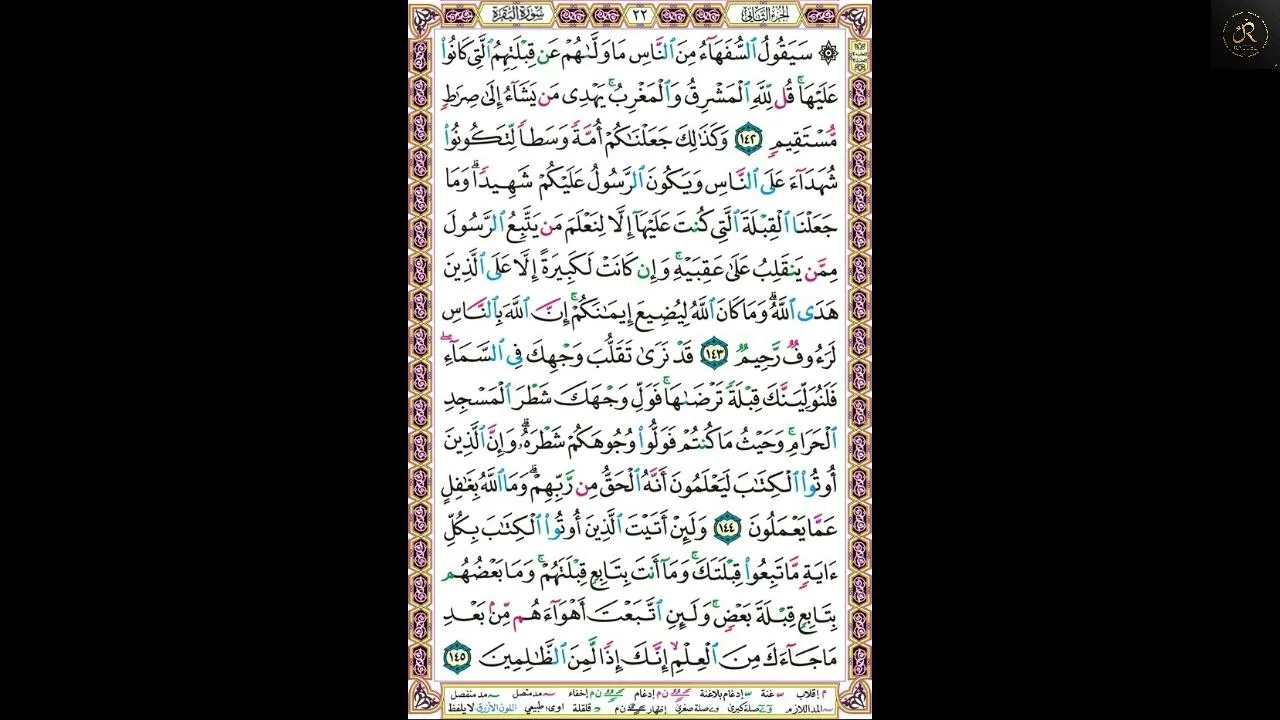 الجزء الثاني ٢٢ سورة البقرة
۞ سَيَقُولُ ٱلسُّفَهَآءُ مِنَ ٱلنَّاسِ مَا وَلَّىٰهُمْ عَن قِبْلَتِهِمُ ٱلَّتِى كَانُوا۟
عَلَيْهَا ۚ قُل لِّلَّهِ ٱلْمَشْرِقُ وَٱلْمَغْرِبُ ۚ يَهْدِى مَن يَشَآءُ إِلَىٰ صِرَٰطٍ
مُّسْتَقِيمٍ ١٤٢ وَكَذَٰلِكَ جَعَلْنَٰكُمْ أُمَّةً وَسَطًا لِّتَكُونُوا۟
شُهَدَآءَ عَلَى ٱلنَّاسِ وَيَكُونَ ٱلرَّسُولُ عَلَيْكُمْ شَهِيدًا ۗ وَمَا
جَعَلْنَا ٱلْقِبْلَةَ ٱلَّتِى كُنتَ عَلَيْهَآ إِلَّا لِنَعْلَمَ مَن يَتَّبِعُ ٱلرَّسُولَ
مِمَّن يَنقَلِبُ عَلَىٰ عَقِبَيْهِ ۚ وَإِن كَانَتْ لَكَبِيرَةً إِلَّا عَلَى ٱلَّذِينَ
هَدَى ٱللَّهُ ۗ وَمَا كَانَ ٱللَّهُ لِيُضِيعَ إِيمَٰنَكُمْ ۚ إِنَّ ٱللَّهَ بِٱلنَّاسِ
لَرَءُوفٌ رَّحِيمٌ ١٤٣ قَدْ نَرَىٰ تَقَلُّبَ وَجْهِكَ فِى ٱلسَّمَآءِ ۖ
فَلَنُوَلِّيَنَّكَ قِبْلَةً تَرْضَىٰهَا ۚ فَوَلِّ وَجْهَكَ شَطْرَ ٱلْمَسْجِدِ
ٱلْحَرَامِ ۚ وَحَيْثُ مَا كُنتُمْ فَوَلُّوا۟ وُجُوهَكُمْ شَطْرَهُۥ ۗ وَإِنَّ ٱلَّذِينَ
أُوتُوا۟ ٱلْكِتَٰبَ لَيَعْلَمُونَ أَنَّهُ ٱلْحَقُّ مِن رَّبِّهِمْ ۗ وَمَا ٱللَّهُ بِغَٰفِلٍ
عَمَّا يَعْمَلُونَ ١٤٤ وَلَئِنْ أَتَيْتَ ٱلَّذِينَ أُوتُوا۟ ٱلْكِتَٰبَ بِكُلِّ
ءَايَةٍ مَّا تَبِعُوا۟ قِبْلَتَكَ ۚ وَمَآ أَنتَ بِتَابِعٍ قِبْلَتَهُمْ ۚ وَمَا بَعْضُهُم
بِتَابِعٍ قِبْلَةَ بَعْضٍ ۚ وَلَئِنِ ٱتَّبَعْتَ أَهْوَآءَهُم مِّنۢ بَعْدِ
مَا جَآءَكَ مِنَ ٱلْعِلْمِ ۙ إِنَّكَ إِذًا لَّمِنَ ٱلظَّٰلِمِينَ ١٤٥
م إقلاب غنة إدغام بلاغنة ن م إدغام ن م إخفاء مد متصل مد منفصل
المد اللازم صلة كبرى صلة صغرى إظهار ن م قلقلة اوى: طبيعي اللون الأزرق لا يلفظ